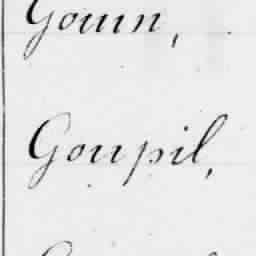 Gouin,
Goupil,